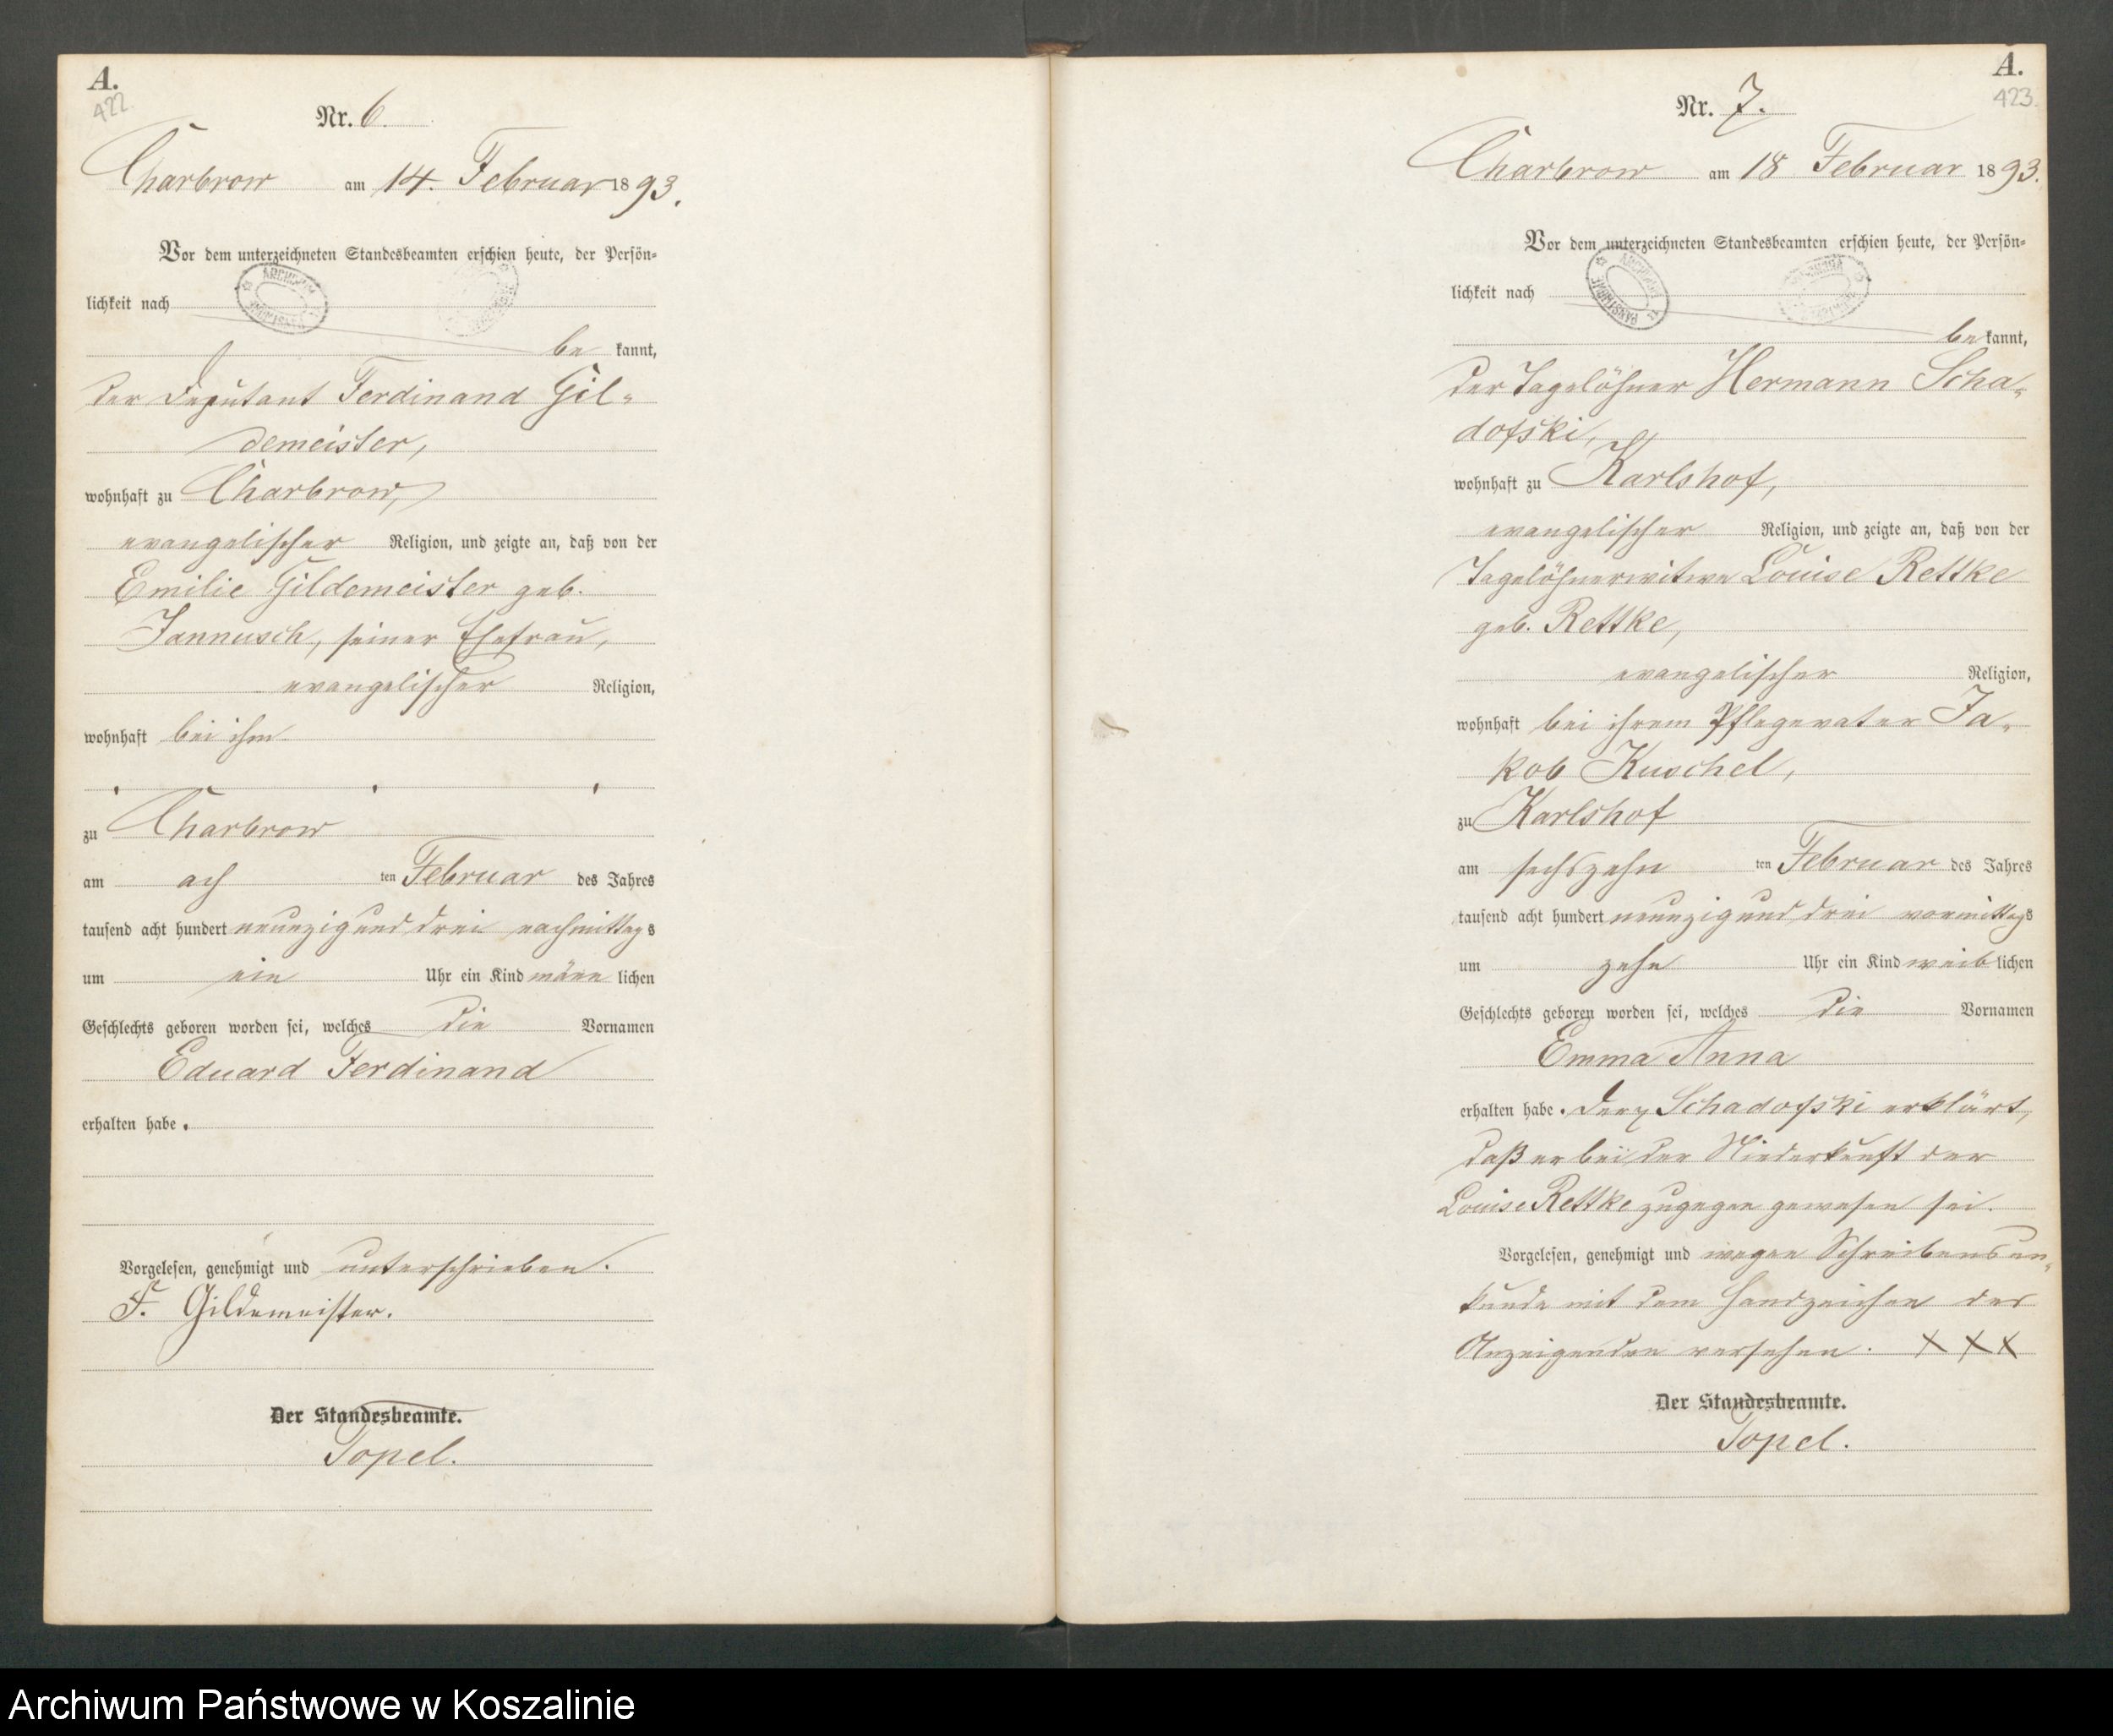 A.
422.
Nr. 6.
Charbrow am 14. Februar 1893.
Vor dem unterzeichneten Standesbeamten erschien heute, der Persön=
lichkeit nach
be kannt,
der Deputant Ferdinand Gil=
demeister,
wohnhaft zu Charbrow,
evangelischer Religion, und zeigte an, daß von der
Emilie Gildemeister geb.
Jannusch, seiner Ehefrau,
evangelischer Religion,
wohnhaft bei ihm
zu Charbrow
am ach ten Februar des Jahres
tausend acht hundert neunzig und drei nachmittags
um ein Uhr ein Kind männ lichen
Geschlechts geboren worden sei, welches die Vornamen
Eduard Ferdinand
erhalten habe.
Vorgelesen, genehmigt und unterschrieben.
F. Gildemeister.
Der Standesbeamte.
Topel.
A.
423.
Nr. 7.
Charbrow am 18 Februar 1893.
Vor dem unterzeichneten Standesbeamten erschien heute, der Persön=
lichkeit nach
be kannt,
der Tagelöhner Hermann Scha=
dofski,
wohnhaft zu Karlshof,
evangelischer Religion, und zeigte an, daß von der
Tagelöhnerwitwe Louise Rettke
geb. Rettke,
evangelischer Religion,
wohnhaft bei ihrem Pflegevater Ja=
kob Kuschel,
zu Karlshof
am sechszehn ten Februar des Jahres
tausend acht hundert neunzig und drei vormittags
um zehn Uhr ein Kind weib lichen
Geschlechts geboren worden sei, welches die Vornamen
Emma Anna
erhalten habe. Schadofski erklärt,
daß er bei der Niederkunft der
Louise Rettke zugegen gewesen sei.
Vorgelesen, genehmigt und wegen Schreibensun=
kunde mit dem Handzeichen des
Anzeigenden versehen. XXX
Der Standesbeamte.
Topel.
Archiwum Państwowe w Koszalinie